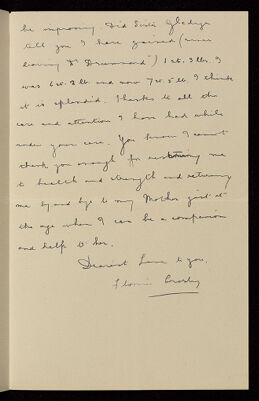 be improving Did Sister Gladys
tell you I have gained (since
leaving Dr Drummond) 1 st. 3 lbs. I
was 6 st. 2 lb and now 7 st. 5 lb. I think
it is splendid. Thanks to all the
care and attention I have had while
under your care. You know I cannot
thank you enough for restoring me
to health and strength and returning
me by and bye to my Mother just at
the age when I can be a companion
and help to her.
Dearest Love to you,
Florrie Crosby